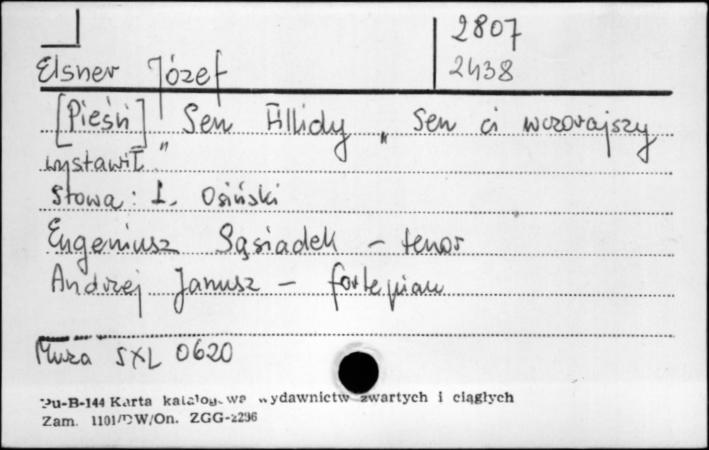 2807
2438
Elsner Józef
[Pieśń] Sen Fillidy „Sen ci wczorajszy
wystawił"
Słowa: L. Osiński
Eugeniusz Sąsiadek - tenor
Andrzej Janusz - fortepian
Muza SXL 0620
Pu-B-144 Karta katalogowa wydawnictw zwartych i ciągłych
Zam. 1101/DW/On. ZGG-2296